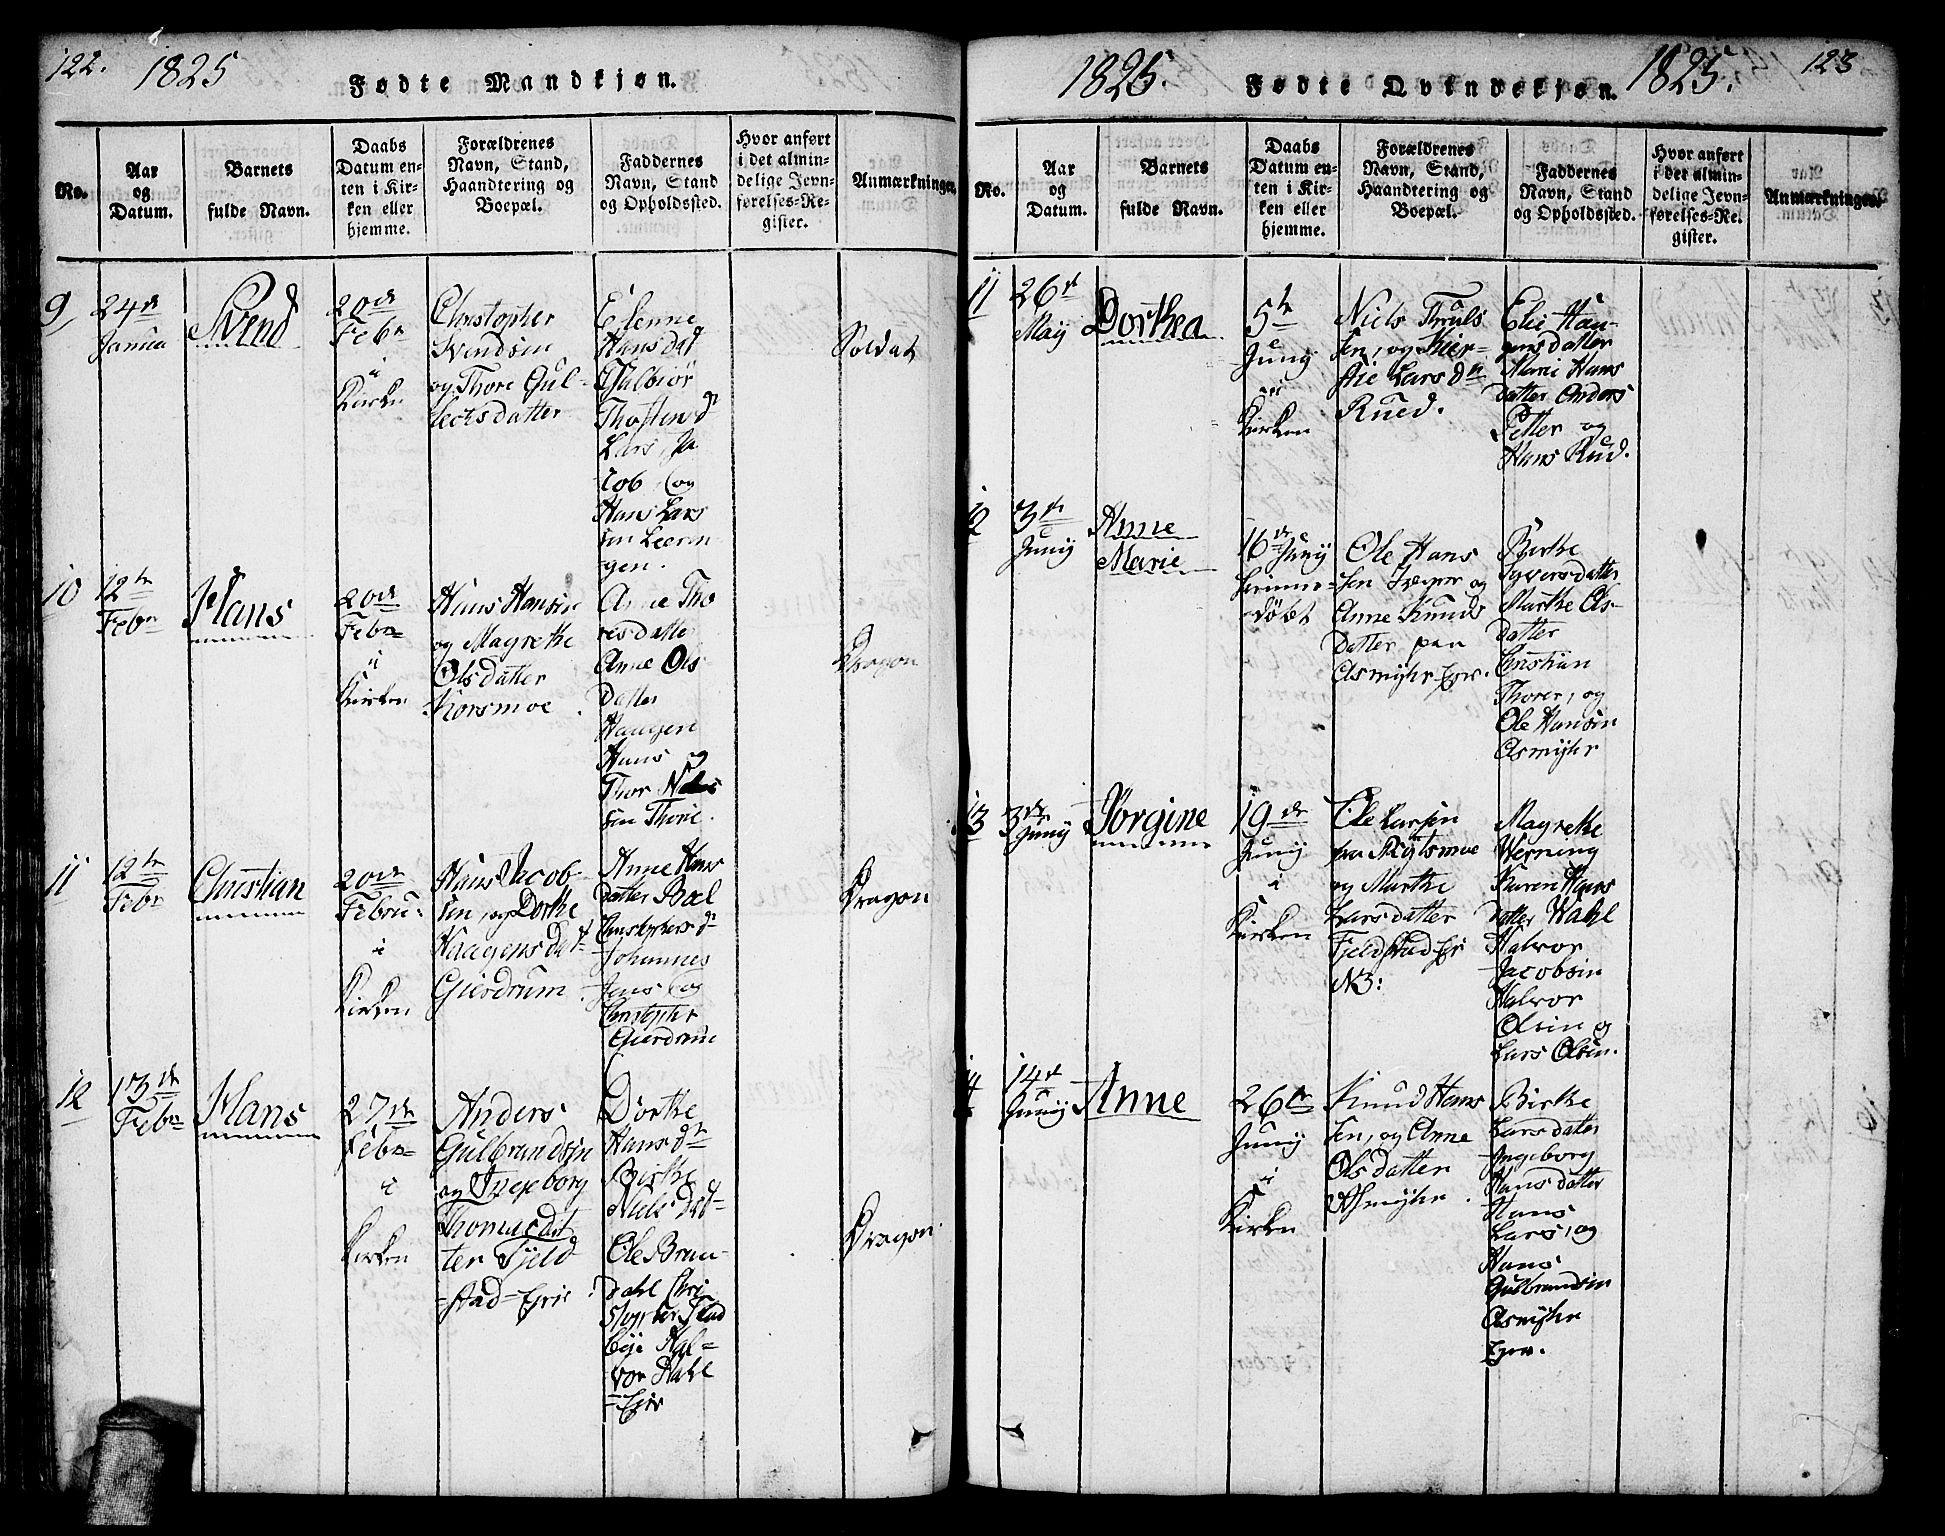 122.
1825
Fødte Mandkjøn.
No.
Aar
og
Datum.
Barnets
fulde Navn.
Daabs
Datum en-
ten i Kir-
ken eller
hjemme.
Forældrenes
Navn, Stand,
Haandtering og
Boepæl.
Faddernes
Navn, Stand
og Opholdssted.
Hvor anført
i det almin-
delige Jevn-
førelses-Re-
gister.
Anmærkninger.
9
24de
Janua
Svend
20de
Febr
i
Kirken
Christopher
Svendsen
og Thore Gul-
lecksdatter
Hansdat
Thosten
Lars, Ja
cob, og
Hans Lars
sen Leeren
gen.
Soldat
10
12te
Febr
Hans
20de
Febr
i
Kirken
Hans Hansen
og Magrethe
Olsdatter
Korsmoe
Anne Tho
resdatte
Anne Ols
datter
Haagen
Hans og
Thor Niels
sen Thorie.
Dragon
11
12te
Febr
Christian
20de
Febru:
i
Kirken
Hans Jacob
sen, og Dorthe
Haagensdat
Gierdrum
Anne Hans
datter Boel
Christophersd
Johannes
Jens og
Christopher
Gierdrum
Dragon
12
13de
Febr
Hans
27de
Febr
i
Kirken
Anders
Gulbrandsen
og Ingeborg
Thomasdat
ter Fjeld
stad Eyer
Dorthe
Hansdr
Birthe
Nielsdat-
Ole Bran-
dahl Chri
stopher
bye Hal-
vor Dahl
Eyer
Dragon
1825.
Fødte Qvindekjøn.
1825.
123
No.
Aar
og
Datum.
Barnets
fulde Navn.
Daabs
Datum en-
ten i Kir-
ken eller
hjemme.
Forældrenes
Navn, Stand,
Haandtering og
Boepæl.
Faddernes
Navn, Stand
og Opholdssted.
Hvor anført
i det almin-
delige Jevn-
førelses-Re-
gister.
Anmærkninger.
11
26de
May
Dorthea
5te
Juny
i
Kirken
Niels Truls
sen, og Kier-
stie Larsdr
Rued.
Elie Haa-
gensdatter
Marie Hans
datter Anders
Petter og
Hans Rud.
12
3de
Juny
Anne
Marie
16de Juny
hiemme
døbt
Ole Hans
sen og
Anne Knuds
datter paa
Asmyhr Eyer.
Birthe
Syversdatter
Marthe Ols-
datter
Christian
Thorer, og
Ole Hansen
Asmyhr
13
3de
Juny
Jørgine
19de
Juny
i
Kirken
Ole Larsen
fra
og Marthe
Larsdatter
Fjeldstad Eyer
NB:
Magrethe
Werning
Karen Hans
datter Wahl
Halvor
Jacobsen
Halvor
Olsen og
Lars Olsen.
14
14de
Juny
Anne
26de
Juny
i
Kirken
Knud Hans
sen, og Anne
Olsdatter
Asmyhr.
Birthe
Larsdatter
Ingeborg
Hansdatter
Hans
Lars, og
Hans
Gulbrandsen
Asmyhr
Eyer.